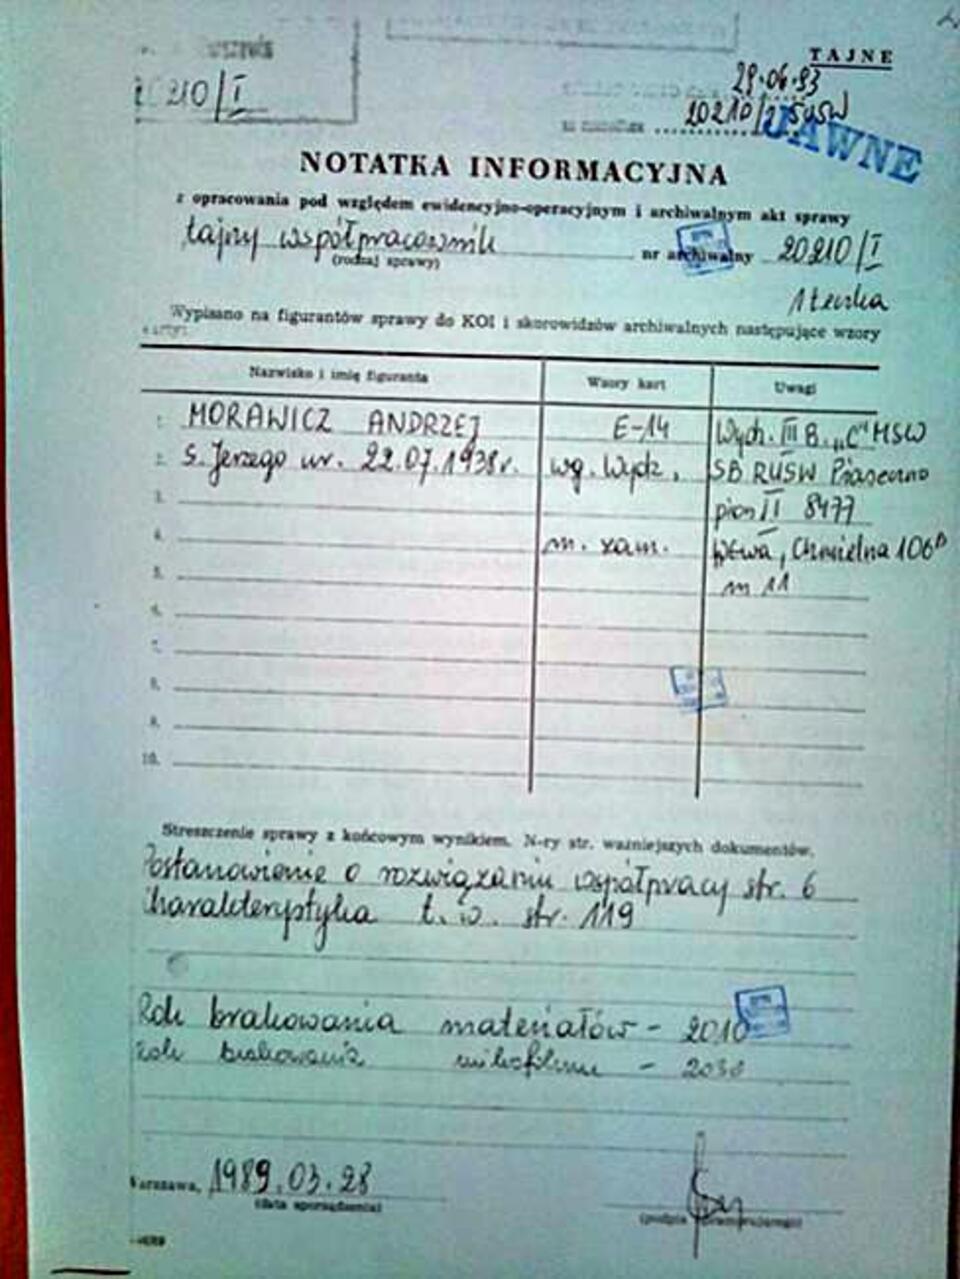 20210/I
TAJNE
29.04.93
20210/
JAWNE
NOTATKA INFORMACYJNA
z opracowania pod względem ewidencyjno-operacyjnym i archiwalnym akt sprawy
tajny współpracownik nr archiwalny 20210/I
(rodzaj sprawy)
1 teczka
Wypisano na figurantów sprawy do KOI i skorowidzów archiwalnych następujące wzory
Nazwisko i imię figuranta Wzory kart Uwagi
1. MORAWICZ ANDRZEJ E-14 Wych. III B. „C" MSW
2. s. Jerzego ur. 22.07.1938r. wg. Wych. SB RUSW Piaseczno
3. pion II 8477
4. m. zam. W-wa, Chmielna 106
5. m 11
6.
7.
8.
9.
10.
Streszczenie sprawy z końcowym wynikiem. N-ry str. ważniejszych dokumentów.
Postanowienie o rozwiązaniu współpracy str. 6
Charakterystyka t.w. str. 119
Rok brakowania materiałów - 2010
Rok brakowania mikrofilmu - 2038
Warszawa, 1989.03.28
(data sporządzenia)
(podpis